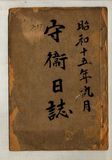 昭和十五年九月
守衞日誌